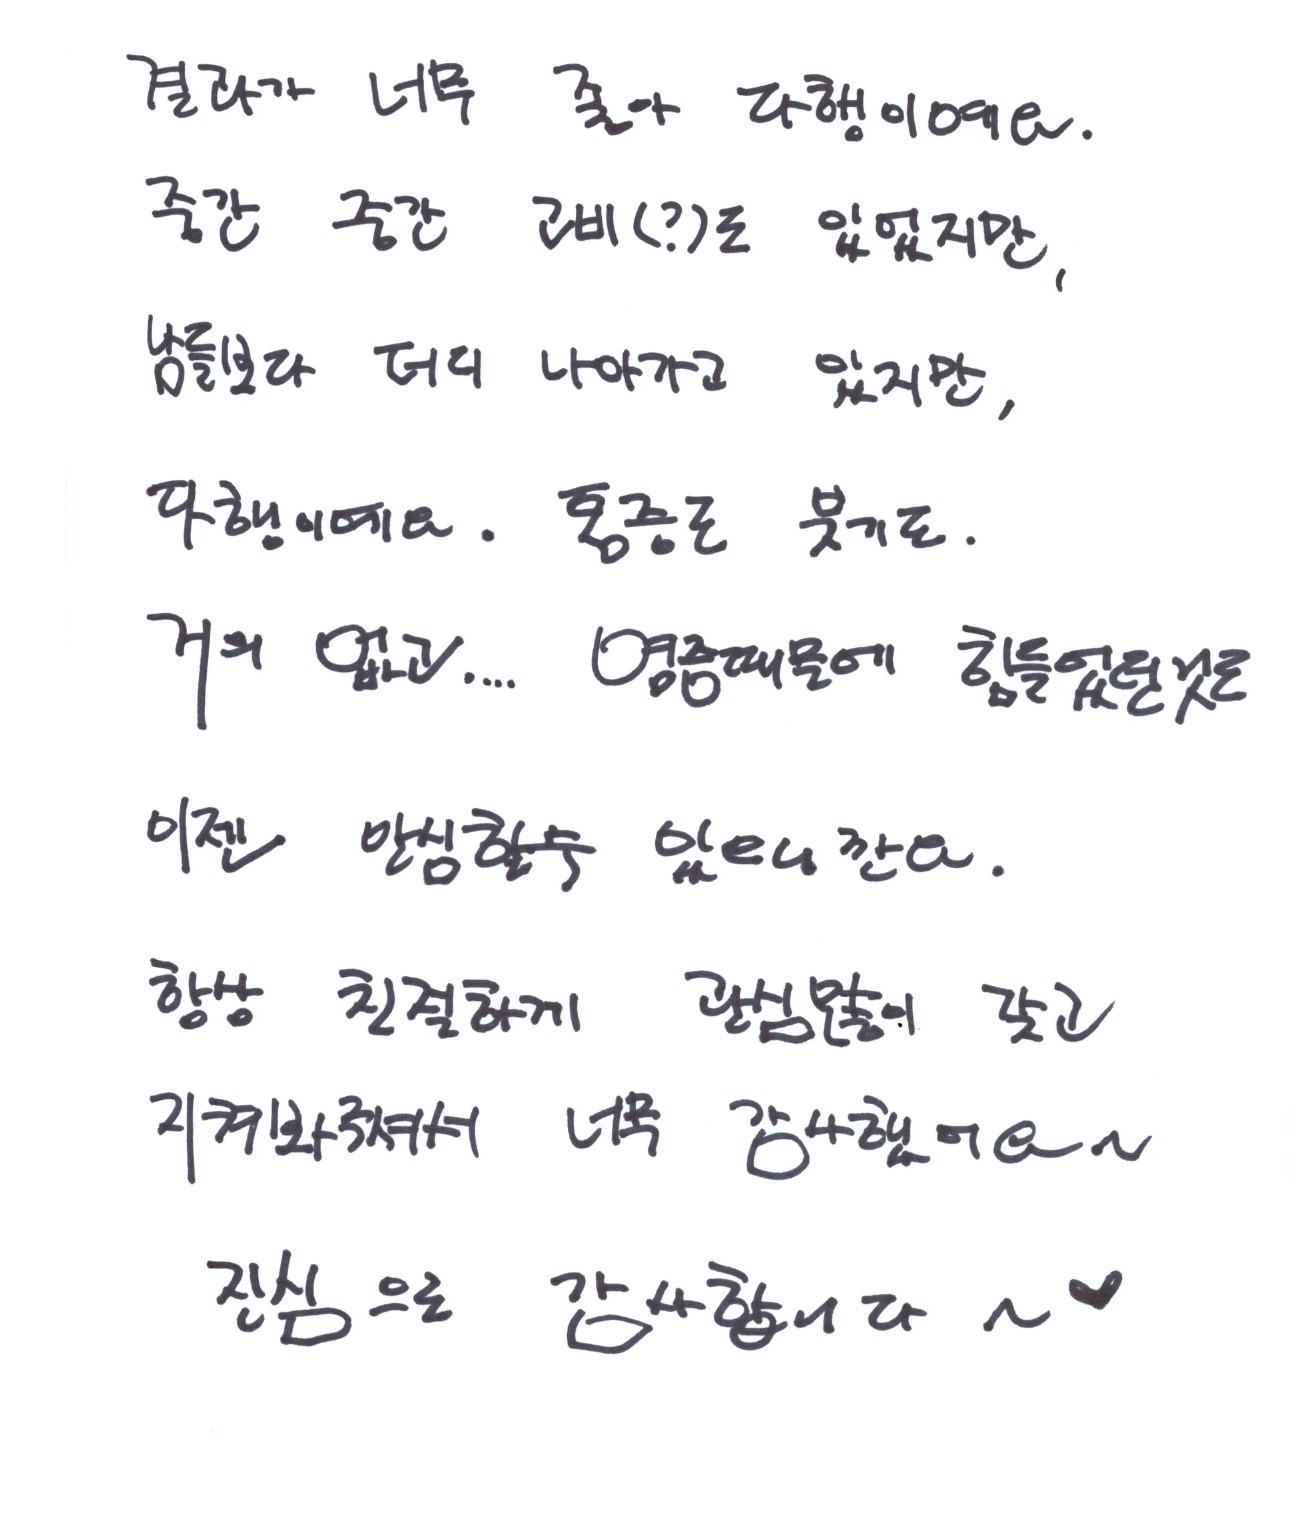 결과가 너무 좋아 다행이예요.
중간 중간 고비(?)도 있었지만,
남들보다 더디 나아가고 있지만,
다행이예요. 통증도 붓기도.
거의 없고.... 염증때문에 힘들었던것도
이젠 안심할수 있으니깐요.
항상 친절하게 관심많이 갖고
지켜봐주셔서 너무 감사했어요~
진심으로 감사합니다 ~♥